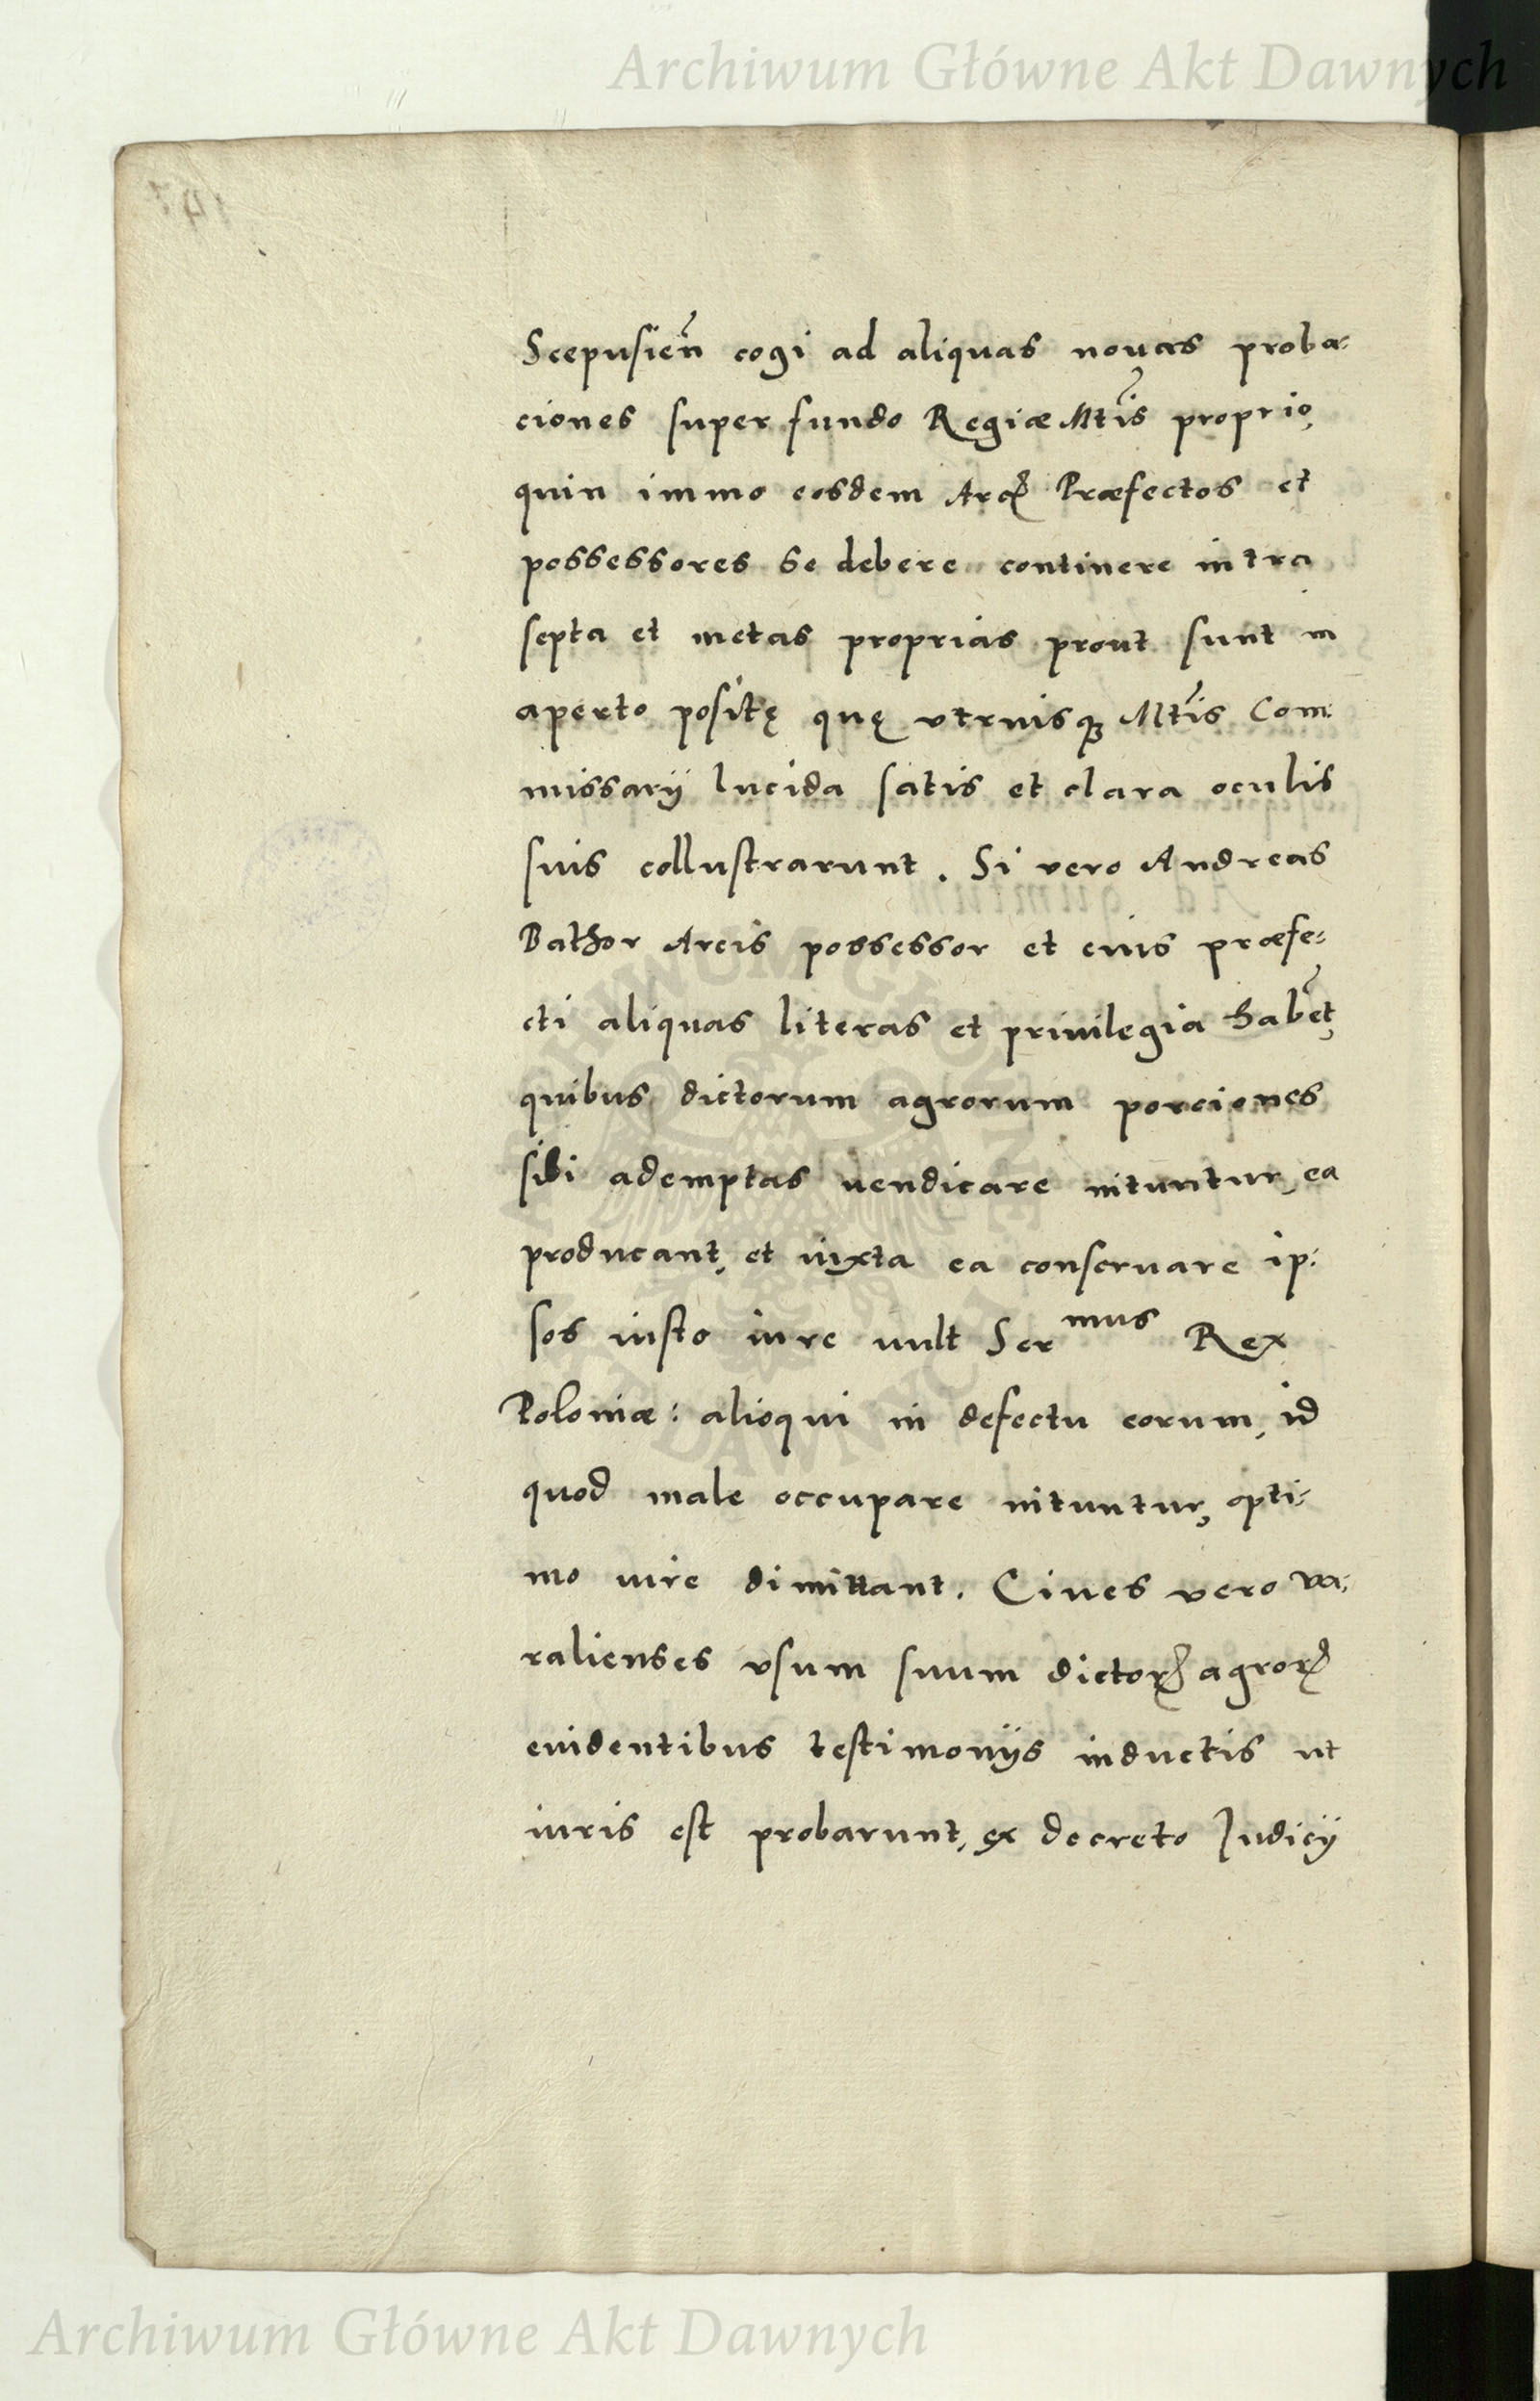 Archiwum Główne Akt Dawnych
Scepusieñ cogi ad aliquas nouas proba:
ciones super fundo Regiæ Mtis proprio,
quin immo eosdem Arcꝭ Præfectos et
possessores se debere continere intra
septa et metas proprias prout sunt in
aperto positę quę vtriusqꝫ Mtis Com:
missarij lucida satis et clara oculis
suis collustrarunt. Si vero Andreas
Bathor Arcis possessor et eius præfe:
cti aliquas literas et priuilegia habẽt,
quibus dictorum agrorum porciones
sibi ademptas uendicare nituntur, ea
producant, et iuxta ea conseruare ip:
sos iusto iure uult Sermus Rex
Poloniæ: alioqui in defectu eorum, id
quod male occupare nituntur, opti:
mo iure dimittant. Ciues vero va:
ralienses vsum suum dictorꝝ agrorꝝ
euidentibus testimonijs inductis ut
iuris est probarunt, ex decreto Iudicij
Archiwum Główne Akt Dawnych